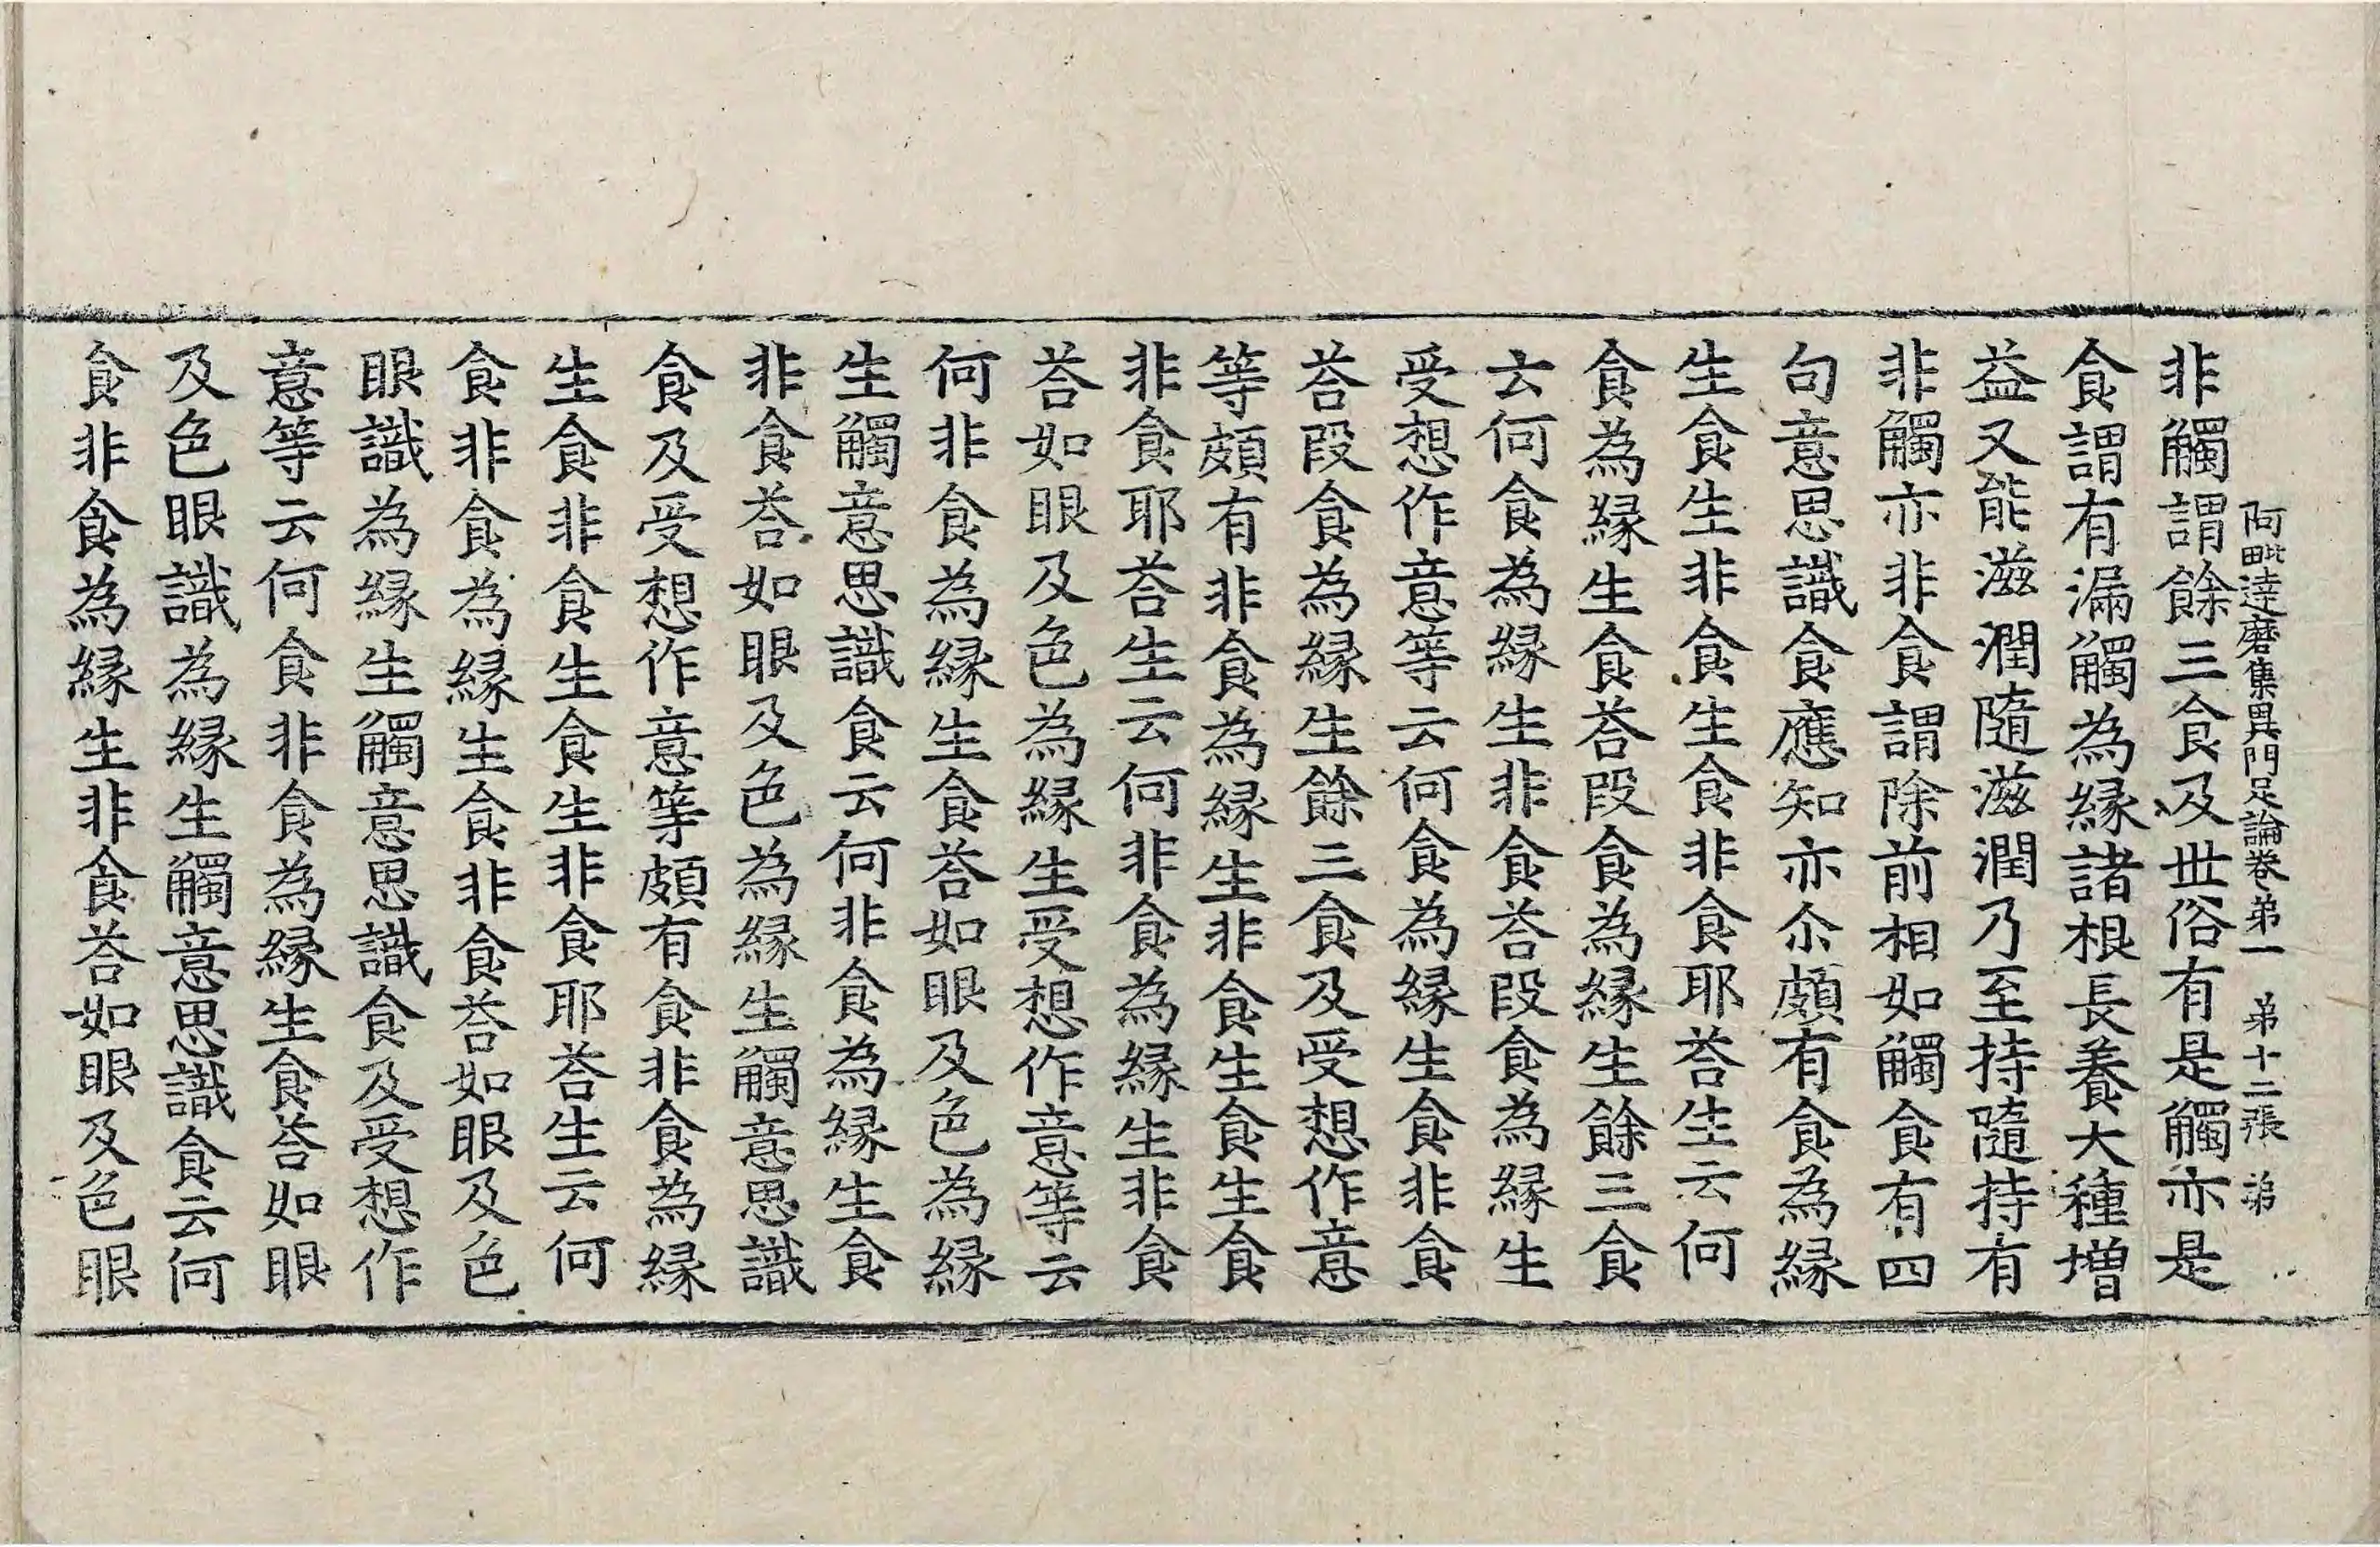 阿毗達磨集異門足論卷第一　第十二張　第
非觸謂餘三食及世俗有是觸亦是
食謂有漏觸為縁諸根長養大種增
益又能滋潤隨滋潤乃至持隨持有
非觸亦非食謂除前相如觸食有四
句意思識食應知亦尒頗有食為縁
生食生非食生食非食耶荅生云何
食為縁生食荅段食為縁生餘三食
云何食為縁生非食荅段食為縁生
受想作意等云何食為縁生食非食
荅段食為縁生餘三食及受想作意
等頗有非食為縁生非食生食生食
非食耶荅生云何非食為縁生非食
荅如眼及色為縁生受想作意等云
何非食為縁生食荅如眼及色為縁
生觸意思識食云何非食為縁生食
非食荅如眼及色為縁生觸意思識
食及受想作意等頗有食非食為縁
生食非食生食生非食耶荅生云何
食非食為縁生食非食荅如眼及色
眼識為縁生觸意思識食及受想作
意等云何食非食為縁生食荅如眼
及色眼識為縁生觸意思識食云何
食非食為縁生非食荅如眼及色眼